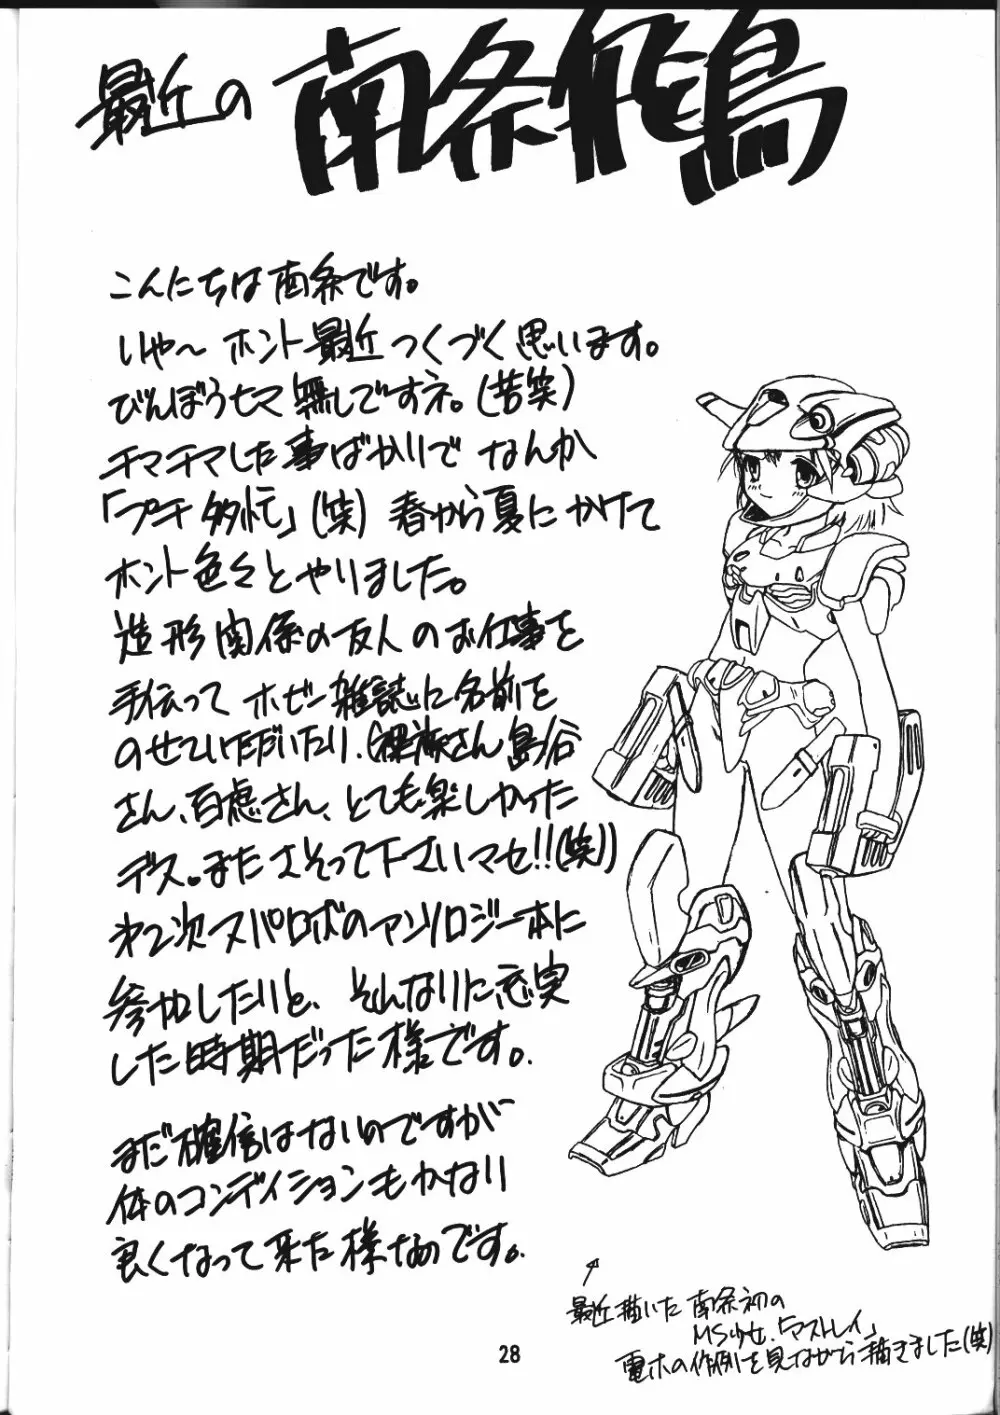 最近の 南条飛鳥
こんにちは南条です。
いや〜 ホント最近つくづく思います。
びんぼうヒマ無しですネ。(苦笑)
チマチマした事ばかりで なんか
「プチ多忙」(笑) 春から夏にかけて
ホント色々とやりました。
造形関係の友人のお仕事を
手伝って ホビー雑誌に名前を
のせていただいたり、さん島谷
さん、百虎さん、とても楽しかった
デス。またさそって下さいマセ!!(笑))
オ2次スパロボのアンソロジー本に
参加したりと、それなりに充実
した時期だった様です。
まだ確信はないのですが
体のコンディションもかなり
良くなって来た様なのです。
最近描いた 南条初の
MS少女「マストレイ」
電ホの作例を見ながら描きました(笑)
28